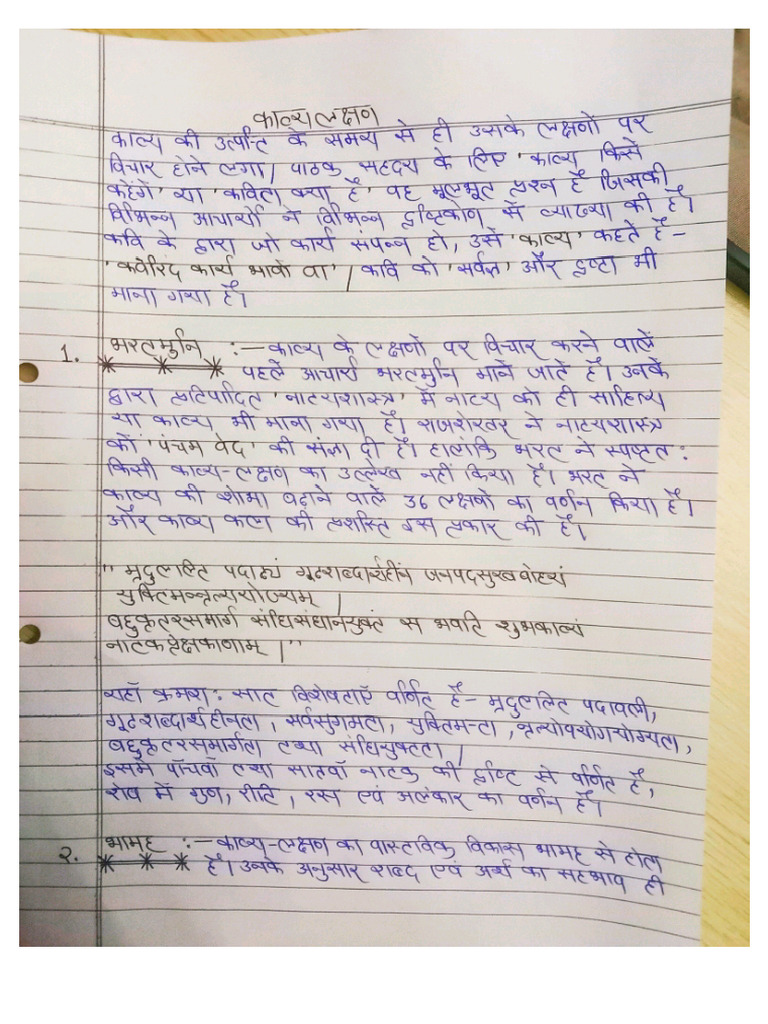 काव्य लक्षण
काव्य की उत्पत्ति के समय से ही उसके लक्षणों पर
विचार होने लगा। पाठक सहृदय के लिए 'काव्य किसे
कहेंगे' या 'कविता क्या है' यह मूलभूत प्रश्न है जिसकी
विभिन्न आचार्यों ने विभिन्न दृष्टिकोण से व्याख्या की है।
कवि के द्वारा जो कार्य संपन्न हो, उसे 'काव्य' कहते हैं-
'कवेरिदं कार्य भावो वा'। कवि को 'सर्वज्ञ' और दृष्टा भी
माना गया है।
1. भरतमुनि :- काव्य के लक्षणों पर विचार करने वाले
पहले आचार्य भरतमुनि माने जाते हैं। उनके
द्वारा प्रतिपादित 'नाट्यशास्त्र' में नाट्य को ही साहित्य
या काव्य भी माना गया है। राजशेखर ने नाट्यशास्त्र
को 'पंचम वेद' की संज्ञा दी है। हालांकि भरत ने स्पष्टत:
किसी काव्य-लक्षण का उल्लेख नहीं किया है। भरत ने
काव्य की शोभा बढ़ाने वाले 36 लक्षणों का वर्णन किया है।
और काव्य कला की प्रशस्ति इस प्रकार की है।
" मृदुललित पदाढ्यं गूढशब्दार्थहीनं जनपदसुखबोध्यं
युक्तिमन्नृत्ययोज्यम् ।
बहुकृतरसमार्ग संधिसंधानयुक्तं स भवति शुभकाव्यं
नाटकप्रेक्षकाणाम् ।"
यहाँ क्रमश: सात विशेषताएँ वर्णित हैं- मृदुललित पदावली,
गूढशब्दार्थहीनता, सर्वसुगमता, युक्तिमत्ता, नृत्योपयोगयोग्यता,
बहुकृतरसमार्गता तथा संधियुक्तता।
इसमें पाँचवाँ तथा सातवाँ नाटक की दृष्टि से वर्णित हैं,
शेष में गुण, रीति, रस एवं अलंकार का वर्णन है।
2. भामह :- काव्य-लक्षण का वास्तविक विकास भामह से होता
है। उनके अनुसार शब्द एवं अर्थ का सहभाव ही